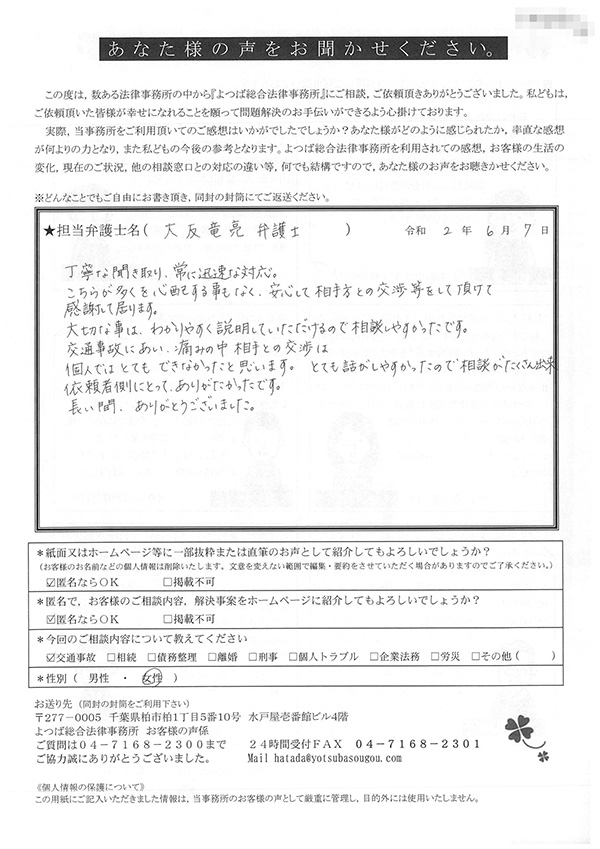 あなた様の声をお聞かせください。
この度は，数ある法律事務所の中から『よつば総合法律事務所』にご相談，ご依頼頂きありがとうございました。私どもは，
ご依頼頂いた皆様が幸せになれることを願って問題解決のお手伝いができるよう心掛けております。
実際，当事務所をご利用頂いてのご感想はいかがでしたでしょうか？あなた様がどのように感じられたか，率直な感想
が何よりの力となり，また私どもの今後の参考となります。よつば総合法律事務所を利用されての感想，お客様の生活の
変化，現在のご状況，他の相談窓口との対応の違い等，何でも結構ですので，あなた様のお声をお聴きかせください。
※どんなことでもご自由にお書き頂き，同封の封筒にてご返送ください。
★担当弁護士名( 大友竜亮 弁護士 ) 令和 2 年 6 月 7 日
丁寧な聞き取り、常に迅速な対応。
こちらが多くを心配する事もなく、安心して相手方との交渉等をして頂けて
感謝して居ります。
大切な事は、わかりやすく説明していただけるので相談しやすかったです。
交通事故にあい、痛みの中相手との交渉は
個人ではとても できなかったと思います。 とても話がしやすかったので相談がたくさん出来
依頼者側にとって、ありがたかったです。
長い間、ありがとうございました。
＊紙面又はホームページ等に一部抜粋または直筆のお声として紹介してもよろしいでしょうか？
（お客様のお名前などの個人情報は削除いたします。文意を変えない範囲で編集・要約をさせていただく場合がありますのでご了承ください。）
☑匿名ならＯＫ □掲載不可
＊匿名で，お客様のご相談内容，解決事案をホームページに紹介してもよろしいでしょうか？
☑匿名ならＯＫ □掲載不可
＊今回のご相談内容について教えてください
☑交通事故 □相続 □債務整理 □離婚 □刑事 □個人トラブル □企業法務 □労災 □その他（ ）
＊性別（ 男性 ・ 女性 ）
お送り先（同封の封筒をご利用下さい）
〒277－0005 千葉県柏市柏1丁目5番10号 水戸屋壱番館ビル4階
よつば総合法律事務所 お客様の声係
ご質問は０４－７１６８－２３００まで ２４時間受付ＦＡＸ ０４－７１６８－２３０１
ご協力誠にありがとうございました。 Mail hatada@yotsubasougou.com
《個人情報の保護について》
この用紙にご記入いただきました情報は，当事務所のお客様の声として厳重に管理し，目的外には使用いたしません。